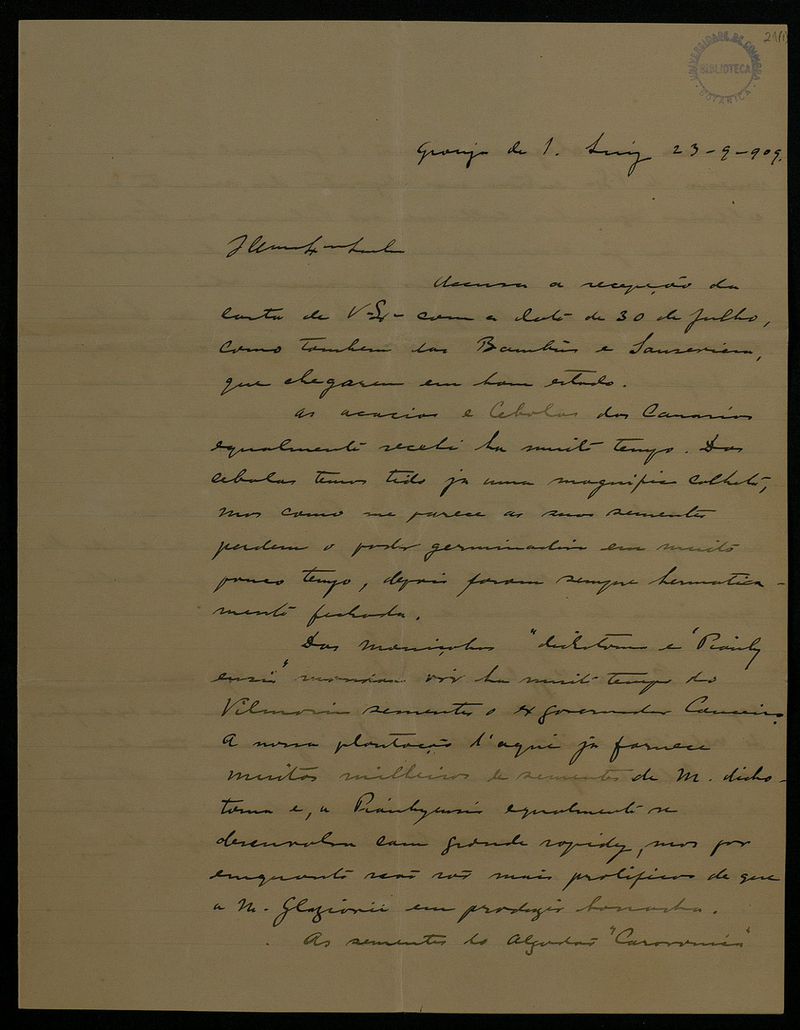 UNIVERSIDADE DE COIMBRA
BIBLIOTECA
BOTANICA
Granja de S. Luiz 23-9-909.
Accuso a recepção da
carta de V. Sª com a data de 30 de Julho,
como tambem das Bambús e Sanseviera,
que chegarem em bom estado.
As acacias e Cebolas das Canarias
egualmente recebi ha muito tempo. Das
cebolas temos tido ja uma magnifica colheta,
mas como me parece as suas sementes
perdem o poder germinadôr em muito
pouco tempo, depois foram sempre hermatica-
mente fechada.
Das maniçobas "dichotoma e "Piauhy
ensis" vir ha muito tempo do
Vilmorin sementes o exgovernador
A nossa plantação d'aqui ja fornece
muitos milheiros de sementes de M. dicho-
toma e, a Piauhyensis egualmente se
desenvolve com grande rapidez, mas por
emquanto são mais prolificas de que
a M. Glaziovii em produzir borracha.
As sementes do Algodão "Caravonica"